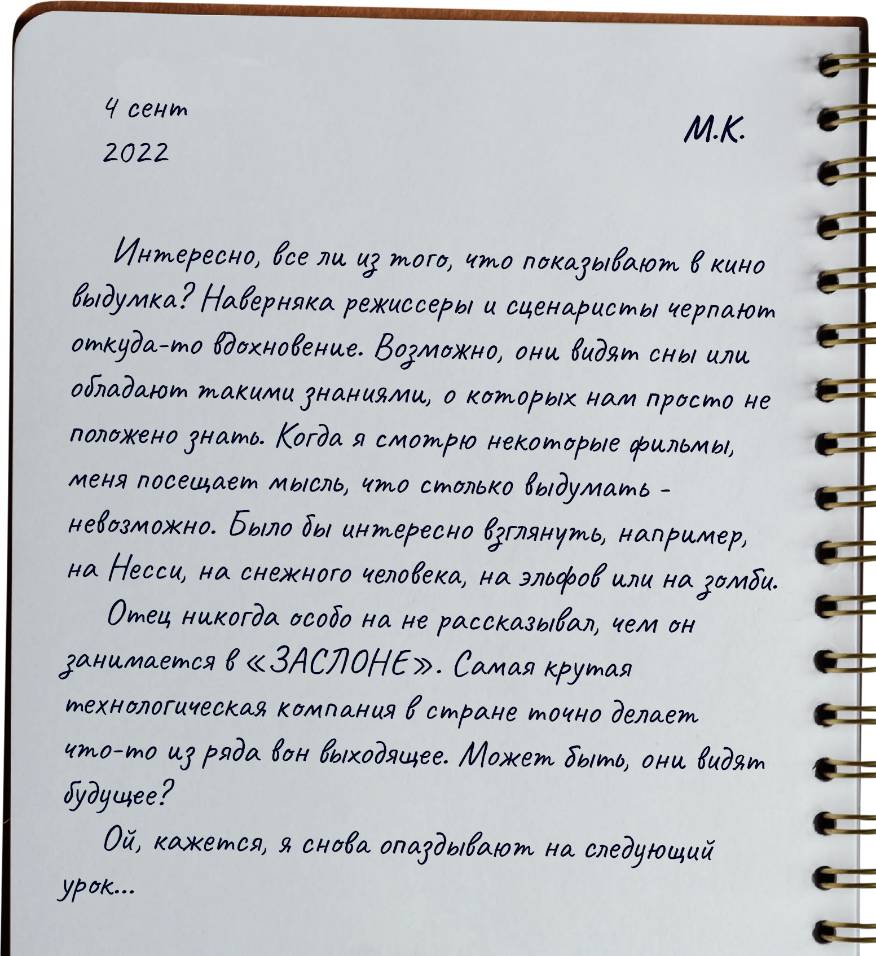 4 сент
2022
М.К.
Интересно, все ли из того, что показывают в кино
выдумка? Наверняка режиссеры и сценаристы черпают
откуда-то вдохновение. Возможно, они видят сны или
обладают такими знаниями, о которых нам просто не
положено знать. Когда я смотрю некоторые фильмы,
меня посещает мысль, что столько выдумать -
невозможно. Было бы интересно взглянуть, например,
на Несси, на снежного человека, на эльфов или на зомби.
Отец никогда особо на не рассказывал, чем он
занимается в «ЗАСЛОНЕ». Самая крутая
технологическая компания в стране точно делает
что-то из ряда вон выходящее. Может быть, они видят
будущее?
Ой, кажется, я снова опаздывают на следующий
урок...